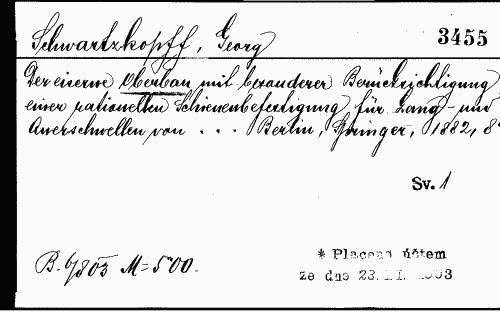 Schwartzkopff, Georg
3455
Der eiserne Oberbau mit besonderer Berücksichtigung
einer rationellen Schienenbefestigung für Lang- und
Querschwellen von . . . Berlin, Springer, 1882, 8°
Sv. 1
B. 6/803 M = 5.00.
* Placeno účtem
ze dne 23.